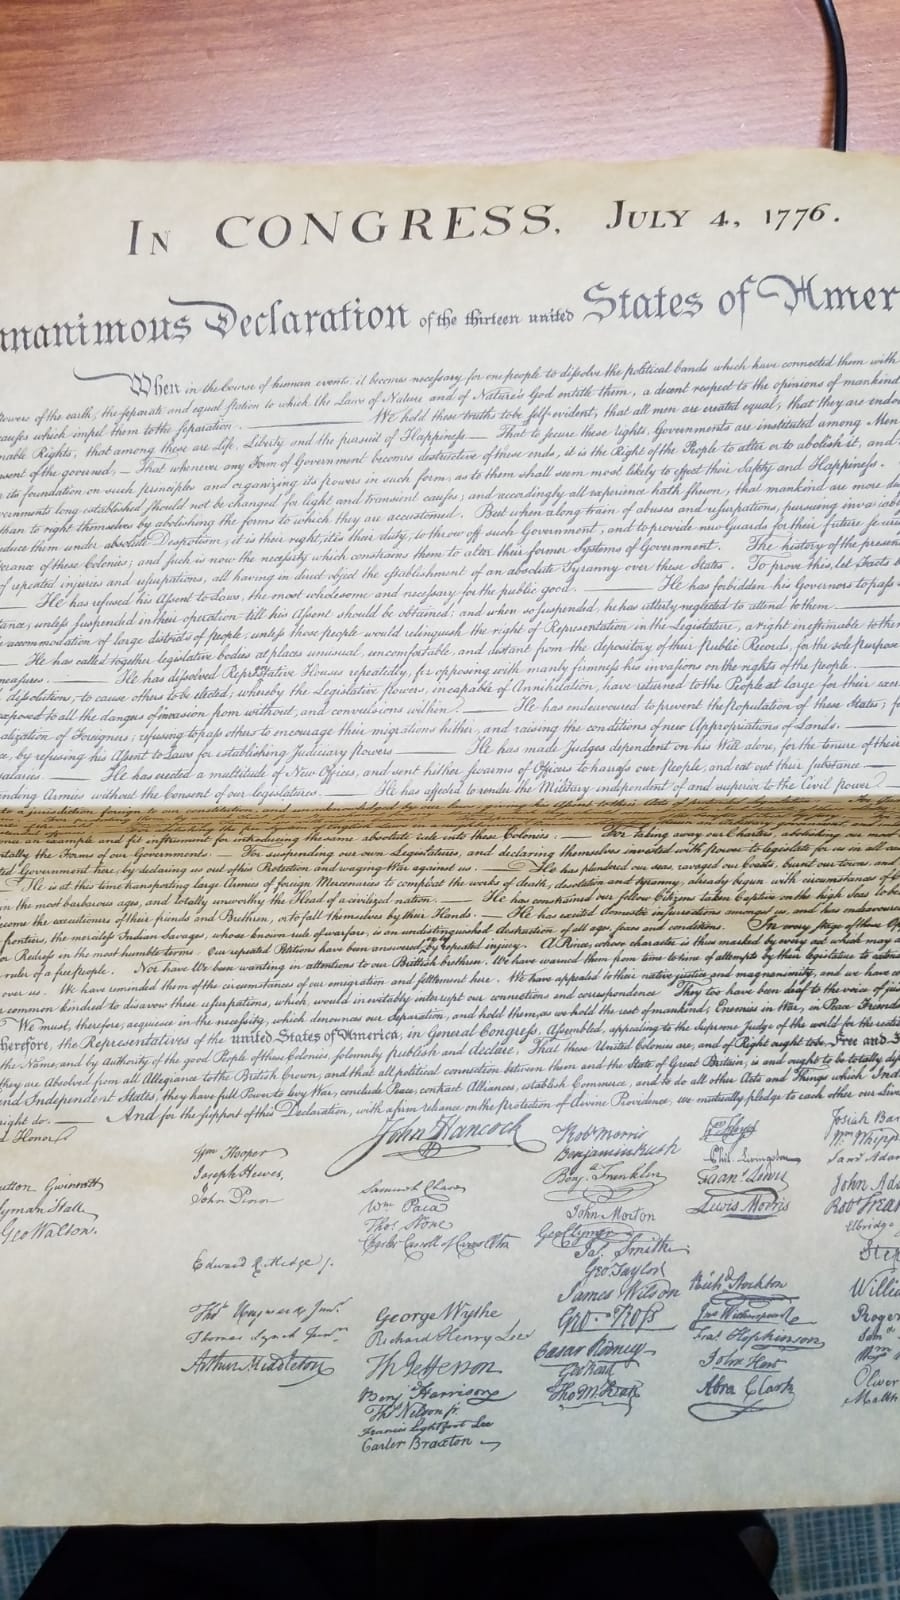 In CONGRESS, July 4, 1776.
nanimous Declaration of the thirteen united States of Amer
When in the Course of human events, it becomes necessary for one people to dissolve the political bands which have connected them with
Powers of the earth, the separate and equal station to which the Laws of Nature and of Nature's God entitle them, a decent respect to the opinions of mankind
causes which impel them to the separation. We hold these truths to be self-evident, that all men are created equal, that they are endow
nable Rights, that among these are Life, Liberty and the pursuit of Happiness.— That to secure these rights, Governments are instituted among Men
sent of the governed, — That whenever any Form of Government becomes destructive of these ends, it is the Right of the People to alter or to abolish it, and
its foundation on such principles and organizing its powers in such form, as to them shall seem most likely to effect their Safety and Happiness.
vernments long established should not be changed for light and transient causes; and accordingly all experience hath shewn, that mankind are more
than to right themselves by abolishing the forms to which they are accustomed. But when a long train of abuses and usurpations, pursuing invariabl
duce them under absolute Despotism, it is their right, it is their duty, to throw off such Government, and to provide new Guards for their future secur
ferance of these Colonies; and such is now the necessity which constrains them to alter their former Systems of Government. The history of the presen
of repeated injuries and usurpations, all having in direct object the establishment of an absolute Tyranny over these States. To prove this, let Facts b
— He has refused his Assent to Laws, the most wholesome and necessary for the public good. — He has forbidden his Governors to pass
tance, unless suspended in their operation till his Assent should be obtained; and when so suspended, he has utterly neglected to attend to them. —
accommodation of large districts of people, unless those people would relinquish the right of Representation in the Legislature, a right inestimable to the
— He has called together legislative bodies at places unusual, uncomfortable, and distant from the depository of their Public Records, for the sole purpose
measures. — He has dissolved Representative Houses repeatedly, for opposing with manly firmness his invasions on the rights of the people. —
dissolutions, to cause others to be elected; whereby the Legislative powers, incapable of Annihilation, have returned to the People at large for their exer
exposed to all the dangers of invasion from without, and convulsions within. — He has endeavoured to prevent the population of these States; f
alization of Foreigners; refusing to pass others to encourage their migrations hither, and raising the conditions of new Appropriations of Lands. —
ce, by refusing his Assent to Laws for establishing Judiciary powers — He has made Judges dependent on his Will alone, for the tenure of their
salaries. — He has erected a multitude of New Offices, and sent hither swarms of Officers to harrass our people, and eat out their substance. —
nding Armies without the Consent of our legislatures. — He has affected to render the Military independent of and superior to the Civil power. —
to a jurisdiction foreign to
once an example and fit instrument for introducing the same absolute rule into these Colonies: — For taking away our Charters, abolishing our most
ntally the Forms of our Governments: — For suspending our own Legislatures, and declaring themselves invested with power to legislate for us in all ca
ted Government here, by declaring us out of his Protection and waging War against us. — He has plundered our seas, ravaged our Coasts, burnt our towns, and
He is at this time transporting large Armies of foreign Mercenaries to compleat the works of death, desolation and tyranny, already begun with circumstances of
in the most barbarous ages, and totally unworthy the Head of a civilized nation. — He has constrained our fellow Citizens taken Captive on the high Seas to be
come the executioners of their friends and Brethren, or to fall themselves by their Hands. — He has excited domestic insurrections amongst us, and has endeavoure
frontiers, the merciless Indian Savages, whose known rule of warfare, is an undistinguished destruction of all ages, sexes and conditions. In every stage of these Op
or Redress in the most humble terms: Our repeated Petitions have been answered only by repeated injury. A Prince, whose character is thus marked by every act which may
ruler of a free people. Nor have We been wanting in attentions to our Brittish brethren. We have warned them from time to time of attempts by their legislature to exten
over us. We have reminded them of the circumstances of our emigration and settlement here. We have appealed to their native justice and magnanimity, and we have co
common kindred to disavow these usurpations, which, would inevitably interrupt our connections and correspondence. They too have been deaf to the voice of jus
We must, therefore, acquiesce in the necessity, which denounces our Separation, and hold them, as we hold the rest of mankind, Enemies in War, in Peace Friends
herefore, the Representatives of the united States of America, in General Congress, Assembled, appealing to the Supreme Judge of the world for the recti
the Name, and by Authority of the good People of these Colonies, solemnly publish and declare, That these United Colonies are, and of Right ought to be, Free and
they are Absolved from all Allegiance to the British Crown, and that all political connection between them and the State of Great Britain, is and ought to be totally dis
and Independent States, they have full Power to levy War, conclude Peace, contract Alliances, establish Commerce, and to do all other Acts and Things which Inde
right do. — And for the support of this Declaration, with a firm reliance on the Protection of divine Providence, we mutually pledge to each other our Live
d Honor
utton Gwinnett
Lyman Hall
Geo Walton.
Wm Hooper
Joseph Hewes,
John Penn
Edward Rutledge /.
Thos Heyward Junr.
Thomas Lynch Junr.
Arthur Middleton
John Hancock
Samuel Chase
Wm. Paca
Thos. Stone
Charles Carroll of Carrollton
George Wythe
Richard Henry Lee
Th Jefferson
Benj Harrison
Thos Nelson jr.
Francis Lightfoot Lee
Carter Braxton
Robt Morris
Benjamin Rush
Benja. Franklin
John Morton
Geo Clymer
Jas. Smith
Geo. Taylor
James Wilson
Geo. Ross
Caesar Rodney
Geo Read
Tho M:Kean
Phil. Livingston
Frans. Lewis
Lewis Morris
Richd. Stockton
Jno Witherspoon
Fras. Hopkinson
John Hart
Abra Clark
Josiah Bar
Wm Whipp
Saml Adam
John Ada
Robt Trea
Elbridge
Step
Willia
Roger
Oliver
Matth